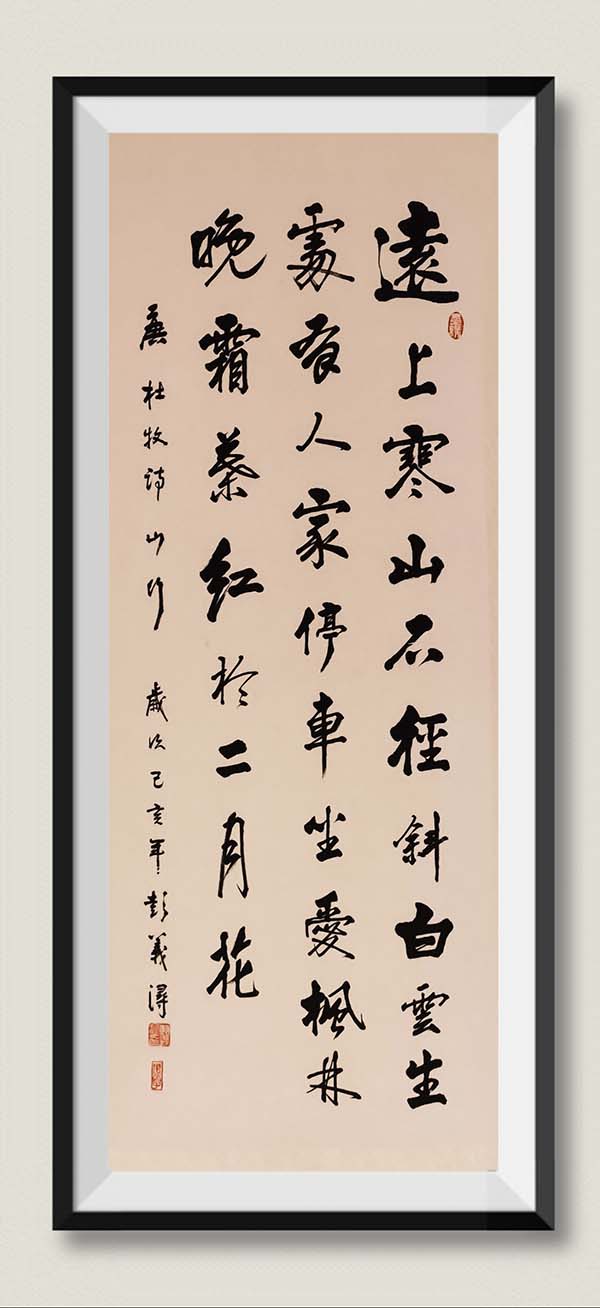 遠上寒山石徑斜白雲生
處有人家停車坐愛楓林
晚霜葉紅於二月花
唐杜牧詩山行 歲次己亥年彭義潯